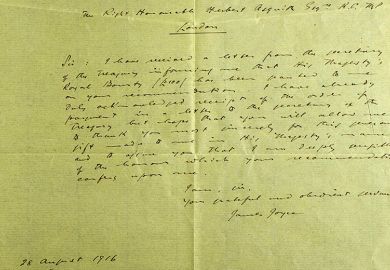 The Right Honourable Herbert Asquith Esqre K.C. MP
London
Sir: I have received a letter from the secretary
of the Treasury informing me that His Majesty's
Royal Bounty (£100) has been granted to me
on your recommendation. I have already
duly acknowledged receipt of the order of
payment in a letter to the secretary of the
Treasury but hope that you will allow me
to thank you most sincerely for this generous
gift made to me in His Majesty's name
and to assure you that I am deeply sensible
of the honour which your recommendation
confers upon me.
I am, sir,
Your grateful and obedient servant
James Joyce
28 August 1916